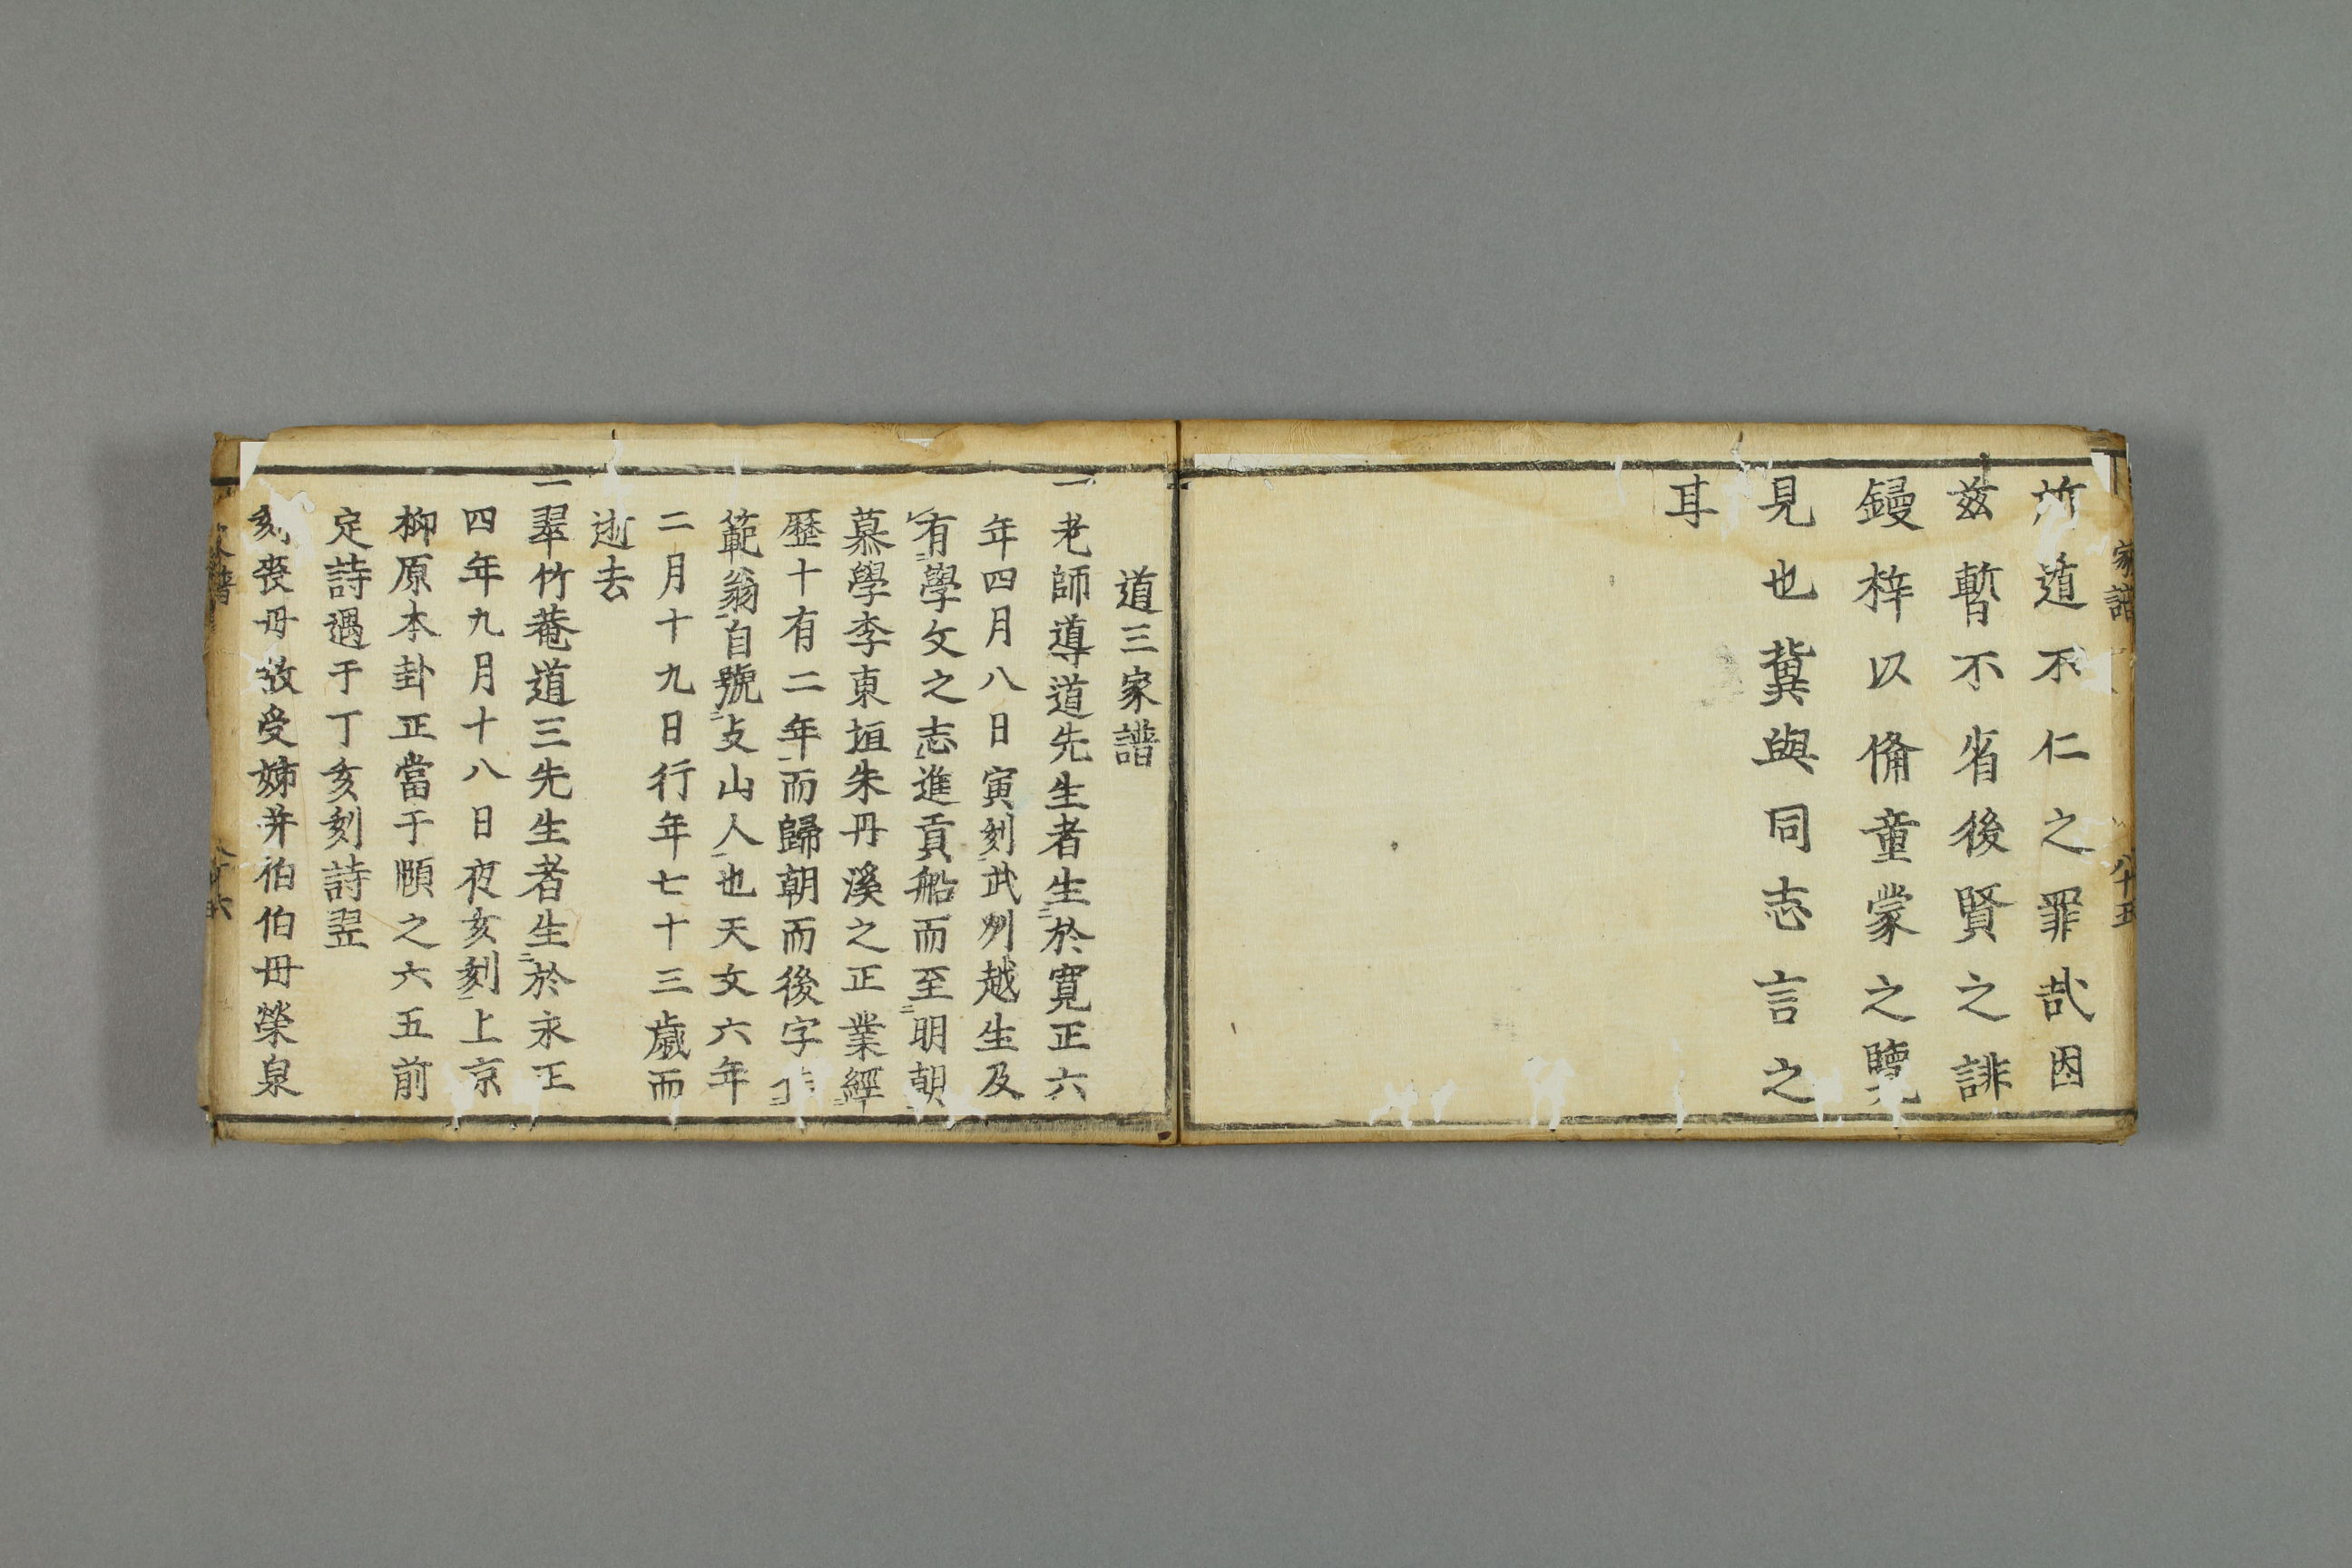 家譜 八十五
於道不仁之罪哉因
茲暫不省後賢之誹
鏝梓以俻童蒙之覽
見也冀與同志言之
耳
道三家譜
一老師導道先生者生於寛正六
年四月八日寅刻武州越生及
有學文之志進貢船而至明朝
慕學李東垣朱丹溪之正業經
歷十有二年而歸朝而後字
範翁自號支山人也天文六年
二月十九日行年七十三歲而
逝去
一翠竹菴道三先生者生於永正
四年九月十八日夜亥刻上京
柳原本卦正當于頤之六五前
定詩遇于丁亥刻詩翌
刻喪母故受姊并伯伯母榮泉
家譜 八十六